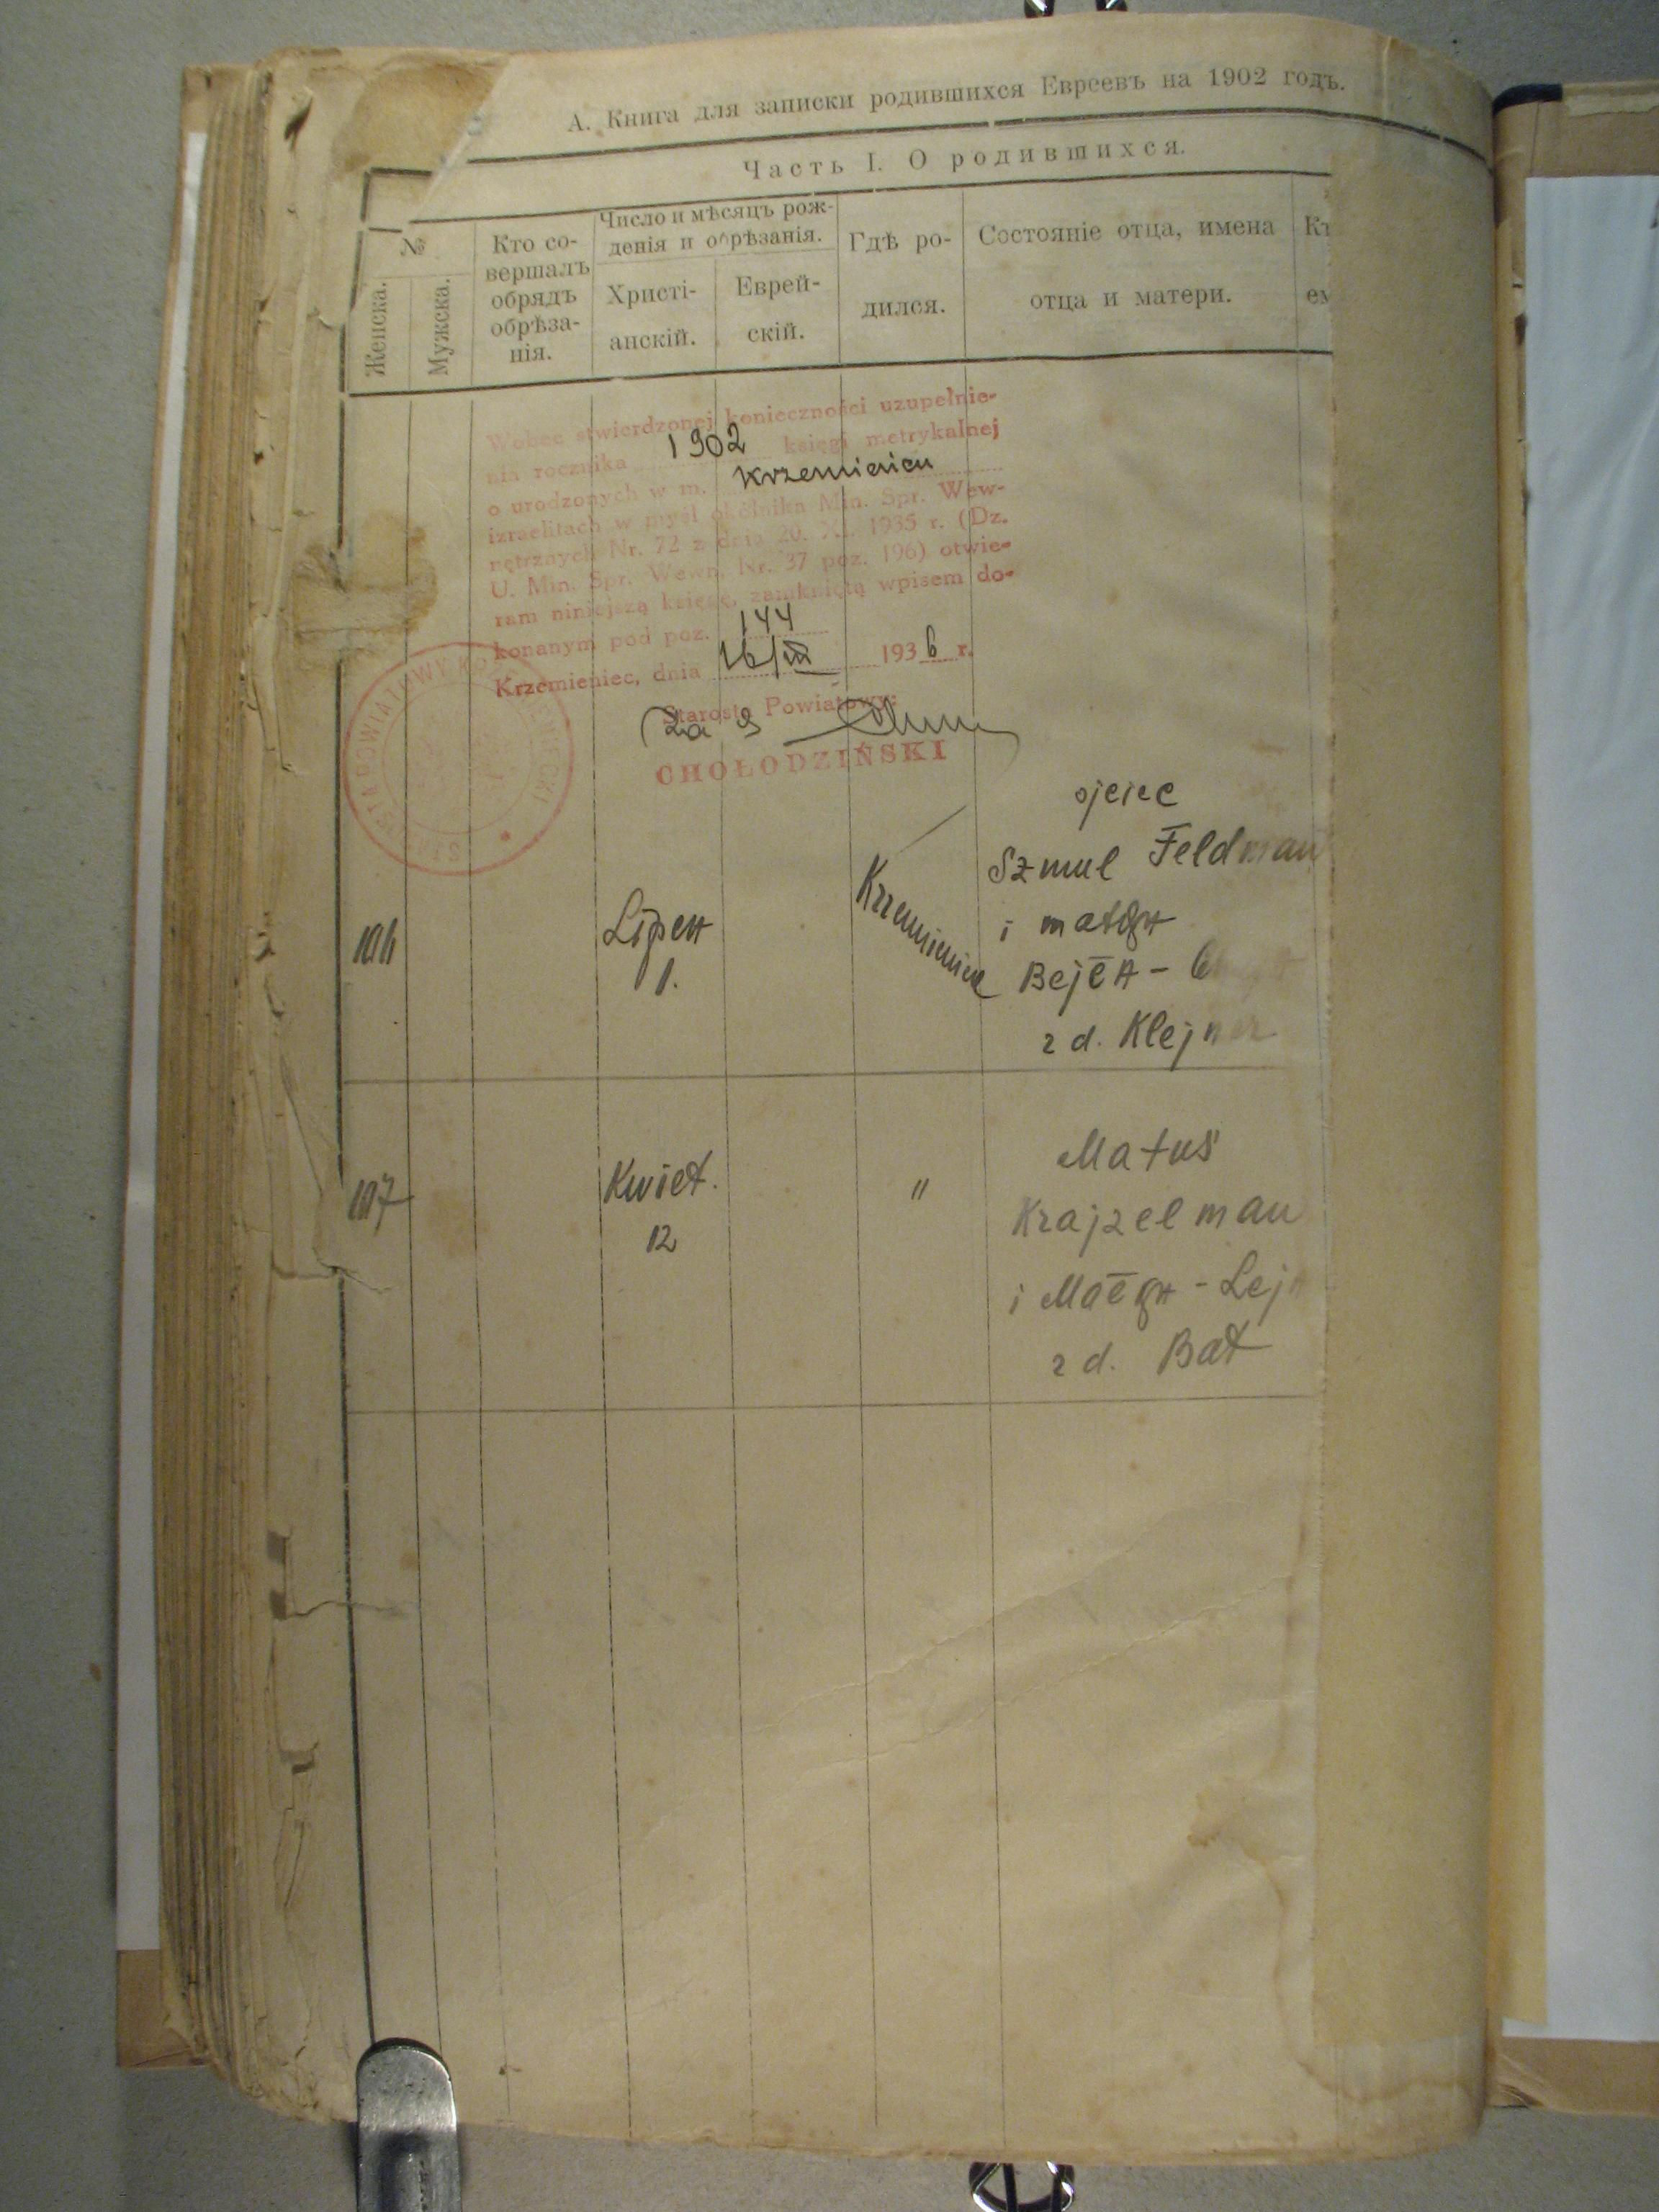 А. Книга для записки родившихся Евреевъ на 1902 годъ.
Часть I. О родившихся.
№
Женска.
Мужска.
Кто со-
вершалъ
обрядъ
обрѣза-
нія.
Число и мѣсяцъ рож-
денія и обрѣзанія.
Христі-
анскій.
Еврей-
скій.
Гдѣ ро-
дился.
Состояніе отца, имена
отца и матери.
Wobec stwierdzonej konieczności uzupełnie-
nia rocznika 1902 księgi metrykalnej
o urodzonych w m. Krzemieńcu
izraelitach w myśl okólnika Min. Spr. Wew-
nętrznych Nr. 72 z dnia 20. XI. 1935 r. (Dz.
U. Min. Spr. Wewn. Nr. 37 poz. 196) otwie-
ram niniejszą księgę, zamkniętą wpisem do-
konanym pod poz. 144
Krzemieniec, dnia 16/III 1936 r.
Starosta Powiatowy:
CHOŁODZIŃSKI
106
Lipca
1.
Krzemieniec
ojciec
Szmul Feldman
i matka
Bejła -
z d.
107
Kwiet.
12
"
Matus
Krajzelman
i - Leja
z d. Bat